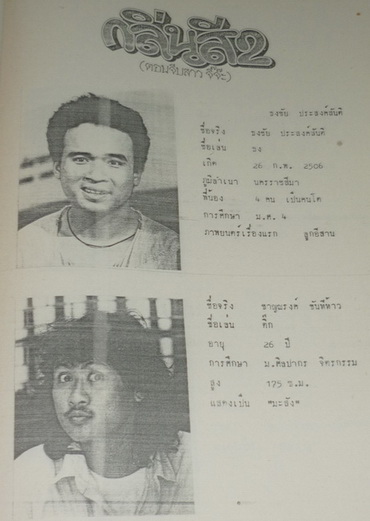 กลิ่นสี2
(ตอนจีบสาว จี๊จ๊ะ)
ธงชัย ประสงค์สันติ
ชื่อจริง ธงชัย ประสงค์สันติ
ชื่อเล่น ธง
เกิด 26 ก.พ. 2506
ภูมิลำเนา นครราชสีมา
พี่น้อง 4 คน เป็นคนโต
การศึกษา ม.ศ. 4
ภาพยนตร์เรื่องแรก ลูกอีสาน
ชื่อจริง ชาญณรงค์ ขันทีท้าว
ชื่อเล่น ตึ๊ก
อายุ 26 ปี
การศึกษา ม.ศิลปากร จิตรกรรม
สูง 175 ซ.ม.
แสดงเป็น "มะลึง"